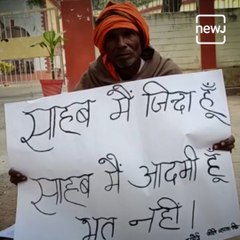 newJ
साहब मैं जिंदा हूँ
साहब मैं आदमी हूँ
भूत नहीं।